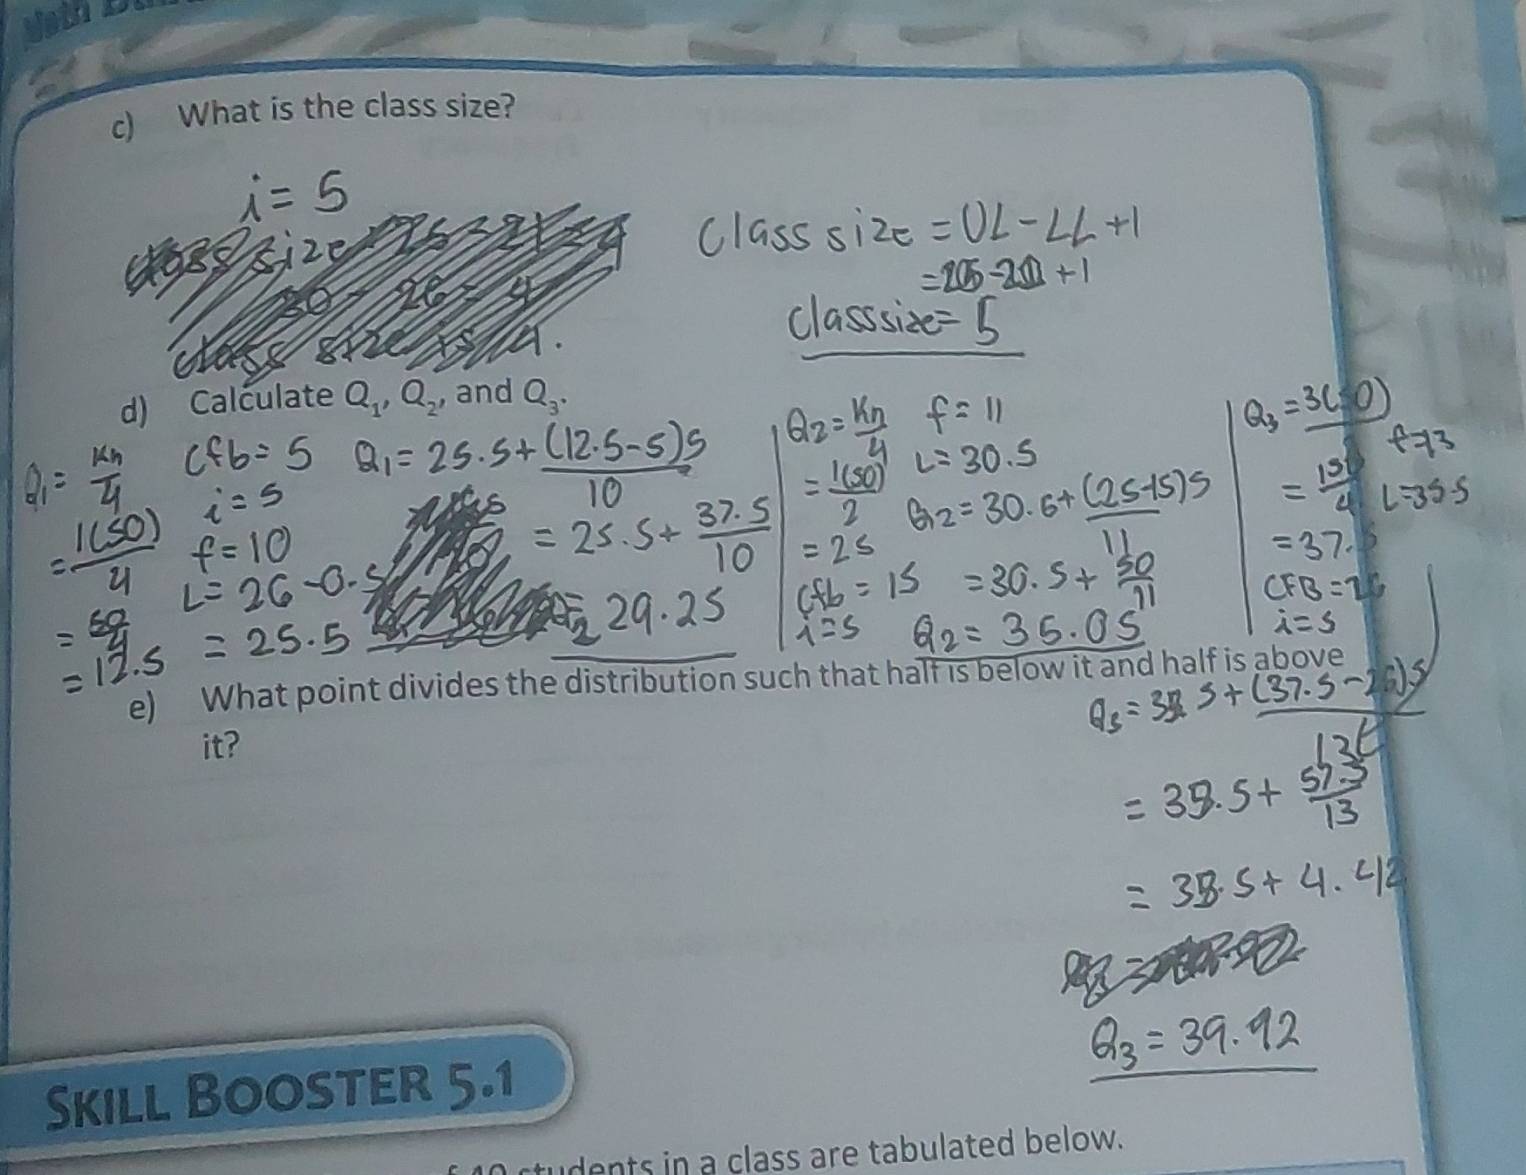 c) What is the class size?
i = 5
Class size = UL - LL + 1
class size = 5
d) Calculate Q₁, Q₂, and Q₃.
Q₁ = Kn/4
= 1(50)/4
= 50/4
= 12.5
Cfb = 5
i = 5
f = 10
L = 26 - 0.5
= 25.5
Q₁ = 25.5 + (12.5 - 5)5/10
= 25.5 + 37.5/10
= 29.25
Q2 = Kn/4
= 1(50)/2
= 25
Cfb = 15
i = 5
f = 11
L = 30.5
Q2 = 30.5 + (25-15)5/11
= 30.5 + 50/11
Q2 = 35.05
Q₃ = 3(50)
= 150/4
= 37.5
CFB = 26
i = 5
f = 13
L = 35.5
e) What point divides the distribution such that half is below it and half is above
it?
Q3 = 35.5 + (37.5 - 26)5/13
= 35.5 + 57.5/13
= 35.5 + 4.42
Q₃ = 39.92
SKILL BOOSTER 5.1
students in a class are tabulated below.